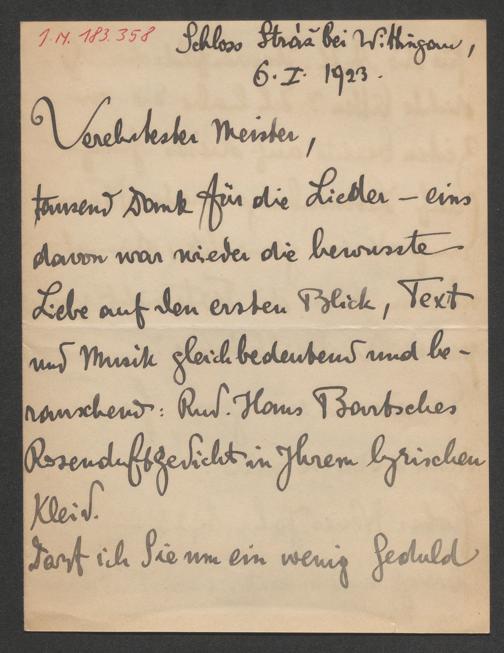 I.N. 183.358
Schloss Stráž bei Wittingau,
6. I. 1923.
Verehrtester Meister,
tausend Dank für die Lieder – eins
davon war wieder die bewusste
Liebe auf den ersten Blick, Text
und Musik gleichbedeutend und be-
rauschend: Rud. Hans Bartsches
Rosenduftgedicht in Ihrem lyrischen
Kleid.
Darf ich Sie um ein wenig Geduld